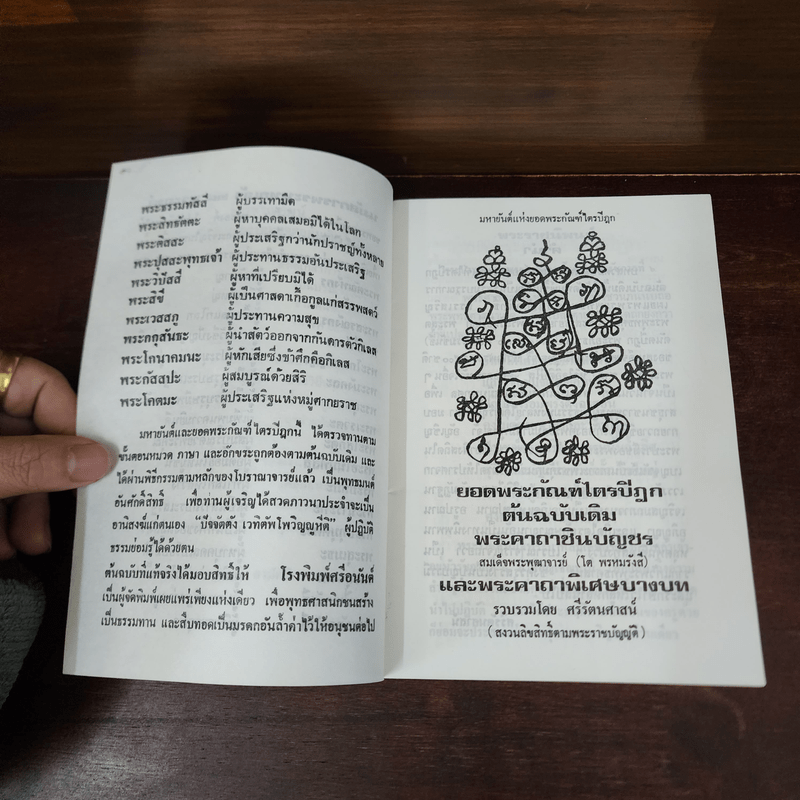 พระธรรมทัสสี ผู้บรรเทามืด
พระสิทธัตตะ ผู้หาบุคคลเสมอมิได้ในโลก
พระติสสะ ผู้ประเสริฐกว่านักปราชญ์ทั้งหลาย
พระปุสสะพุทธเจ้า ผู้ประทานธรรมอันประเสริฐ
พระวิปัสสี ผู้หาที่เปรียบมิได้
พระสิขี ผู้เป็นศาสดาเกื้อกูลแก่สรรพสัตว์
พระเวสสภู ผู้ประทานความสุข
พระกกุสันธะ ผู้นำสัตว์ออกจากกันดารตัวกิเลส
พระโกนาคมนะ ผู้หักเสียซึ่งข้าศึกคือกิเลส
พระกัสสปะ ผู้สมบูรณ์ด้วยสิริ
พระโคตมะ ผู้ประเสริฐแห่งหมู่ศากยราช
มหายันต์และยอดพระกัณฑ์ไตรปิฎกนี้ ได้ตรวจทานตาม
ขั้นตอนหมวด ภาษา และอักขระถูกต้องตามต้นฉบับเดิม และ
ได้ผ่านพิธีกรรมตามหลักของโบราณาจารย์แล้ว เป็นพุทธมนต์
อันศักดิ์สิทธิ์ เพื่อท่านผู้เจริญได้สวดภาวนาประจำจะเป็น
อานิสงฆ์แก่ตนเอง "ปัจจัตตัง เวทิตัพโพวิญญูหีติ" ผู้ปฏิบัติ
ธรรมย่อมรู้ได้ด้วยตน
ต้นฉบับที่แท้จริงได้มอบสิทธิ์ให้ โรงพิมพ์ศรีอนันต์
เป็นผู้จัดพิมพ์เผยแพร่เพียงแห่งเดียว เพื่อพุทธศาสนิกชนสร้าง
เป็นธรรมทาน และสืบทอดเป็นมรดกอันล้ำค่าไว้ให้อนุชนต่อไป
มหายันต์แห่งยอดพระกัณฑ์ไตรปิฎก
ยอดพระกัณฑ์ไตรปิฎก
ต้นฉบับเดิม
พระคาถาชินบัญชร
สมเด็จพระพุฒาจารย์ (โต พรหมรังสี)
และพระคาถาพิเศษบางบท
รวบรวมโดย ศรีรัตนศาสน์
(สงวนลิขสิทธิ์ตามพระราชบัญญัติ)